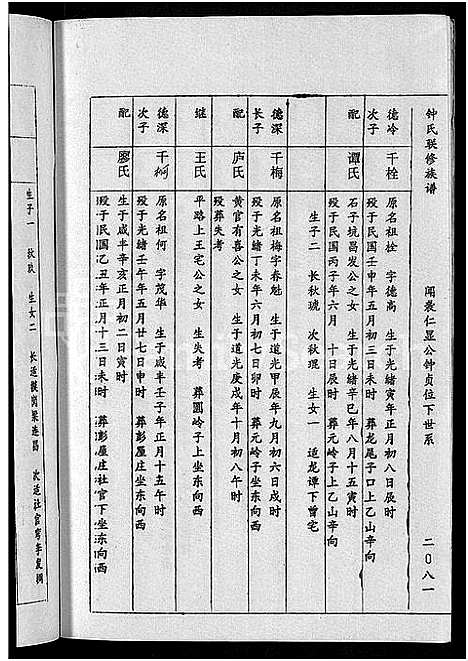 钟氏联修族谱 开裘仁显公钟贞位下世系 二〇八一
德冷次子 千栓 原名祖栓 字德高 生于光绪寅年正月初八日辰时
殁于民国壬申年五月初三日未时 葬龙尾子口上乙山辛向
配 谭氏 石子坑昌发公之女 生于光绪辛巳年八月十五寅时
殁于民国丙子年六月 十日辰时 葬元岭子上乙山辛向
生子二 长秋琥 次秋琨 生女一 适龙谭下曾宅
德深长子 千梅 原名祖梅字春魁 生于道光甲辰年九月初六日戌时
殁于光绪丁未年六月初七日卯时 葬元岭子上乙山辛向
配 庐氏 黄官有喜公之女 生于道光庚戌年十月初八午时
殁葬失考
继 王氏 平路上王宅公之女 生失考 葬圆岭子上坐东向西
德深次子 千柯 原名祖何 字茂华 生于咸丰壬子年正月十五午时
殁于光绪壬午年五月廿七日申时 葬彭屋庄坐东向西
配 廖氏 生于咸丰辛亥正月初二日寅时
殁于民国乙丑年正月十三日未时 葬彭屋庄社官下坐东向西
生子一 秋玖 生女二 长适摸岗梁连昌 次适社官弯李炭桐